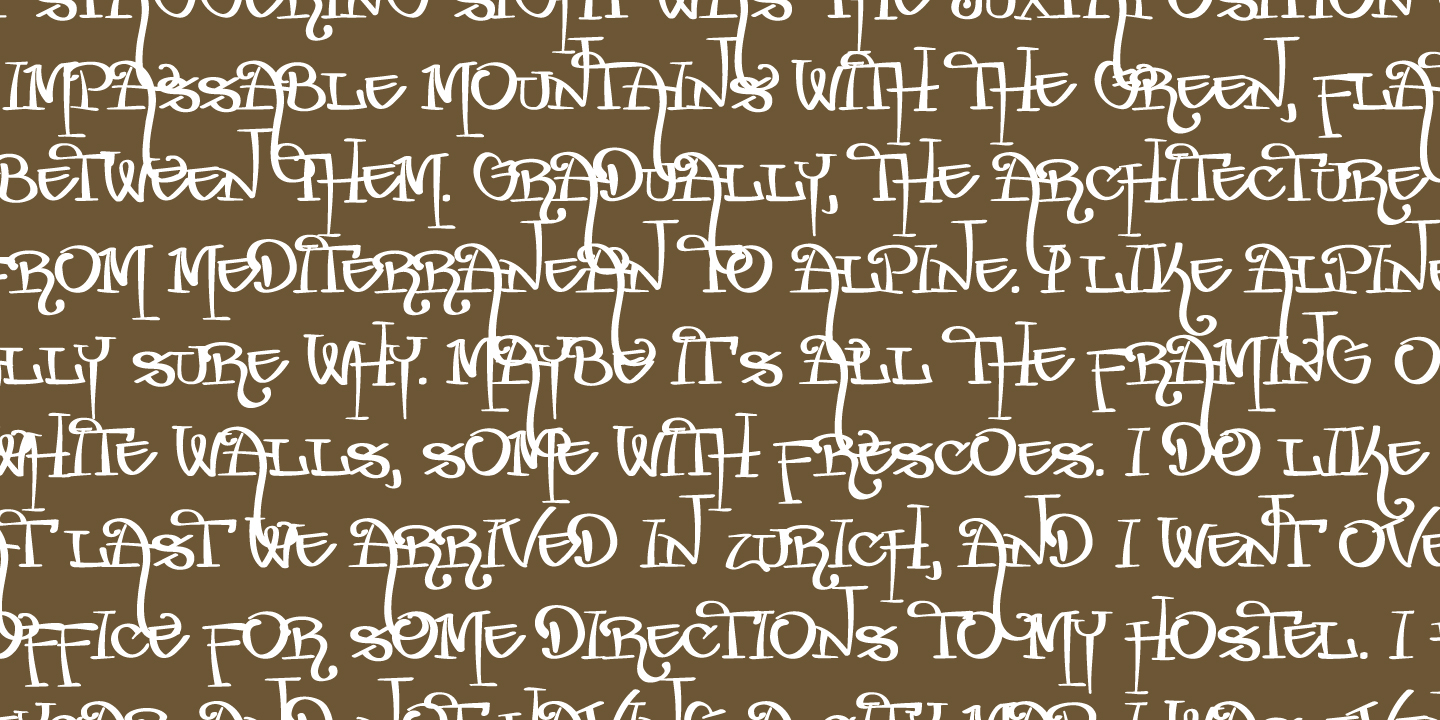 STAGGERING SIGHT WAS THE JUXTAPOSITION
IMPASSABLE MOUNTAINS WITH THE GREEN, FLA
BETWEEN THEM. GRADUALLY, THE ARCHITECTURE
FROM MEDITERRANEAN TO ALPINE. I LIKE ALPINE
LLY SURE WHY. MAYBE IT'S ALL THE FRAMING O
WHITE WALLS, SOME WITH FRESCOES. I DO LIKE
T LAST WE ARRIVED IN ZURICH, AND I WENT OVE
OFFICE FOR SOME DIRECTIONS TO MY HOSTEL. I
AND NOT HAVING A CITY MAP I